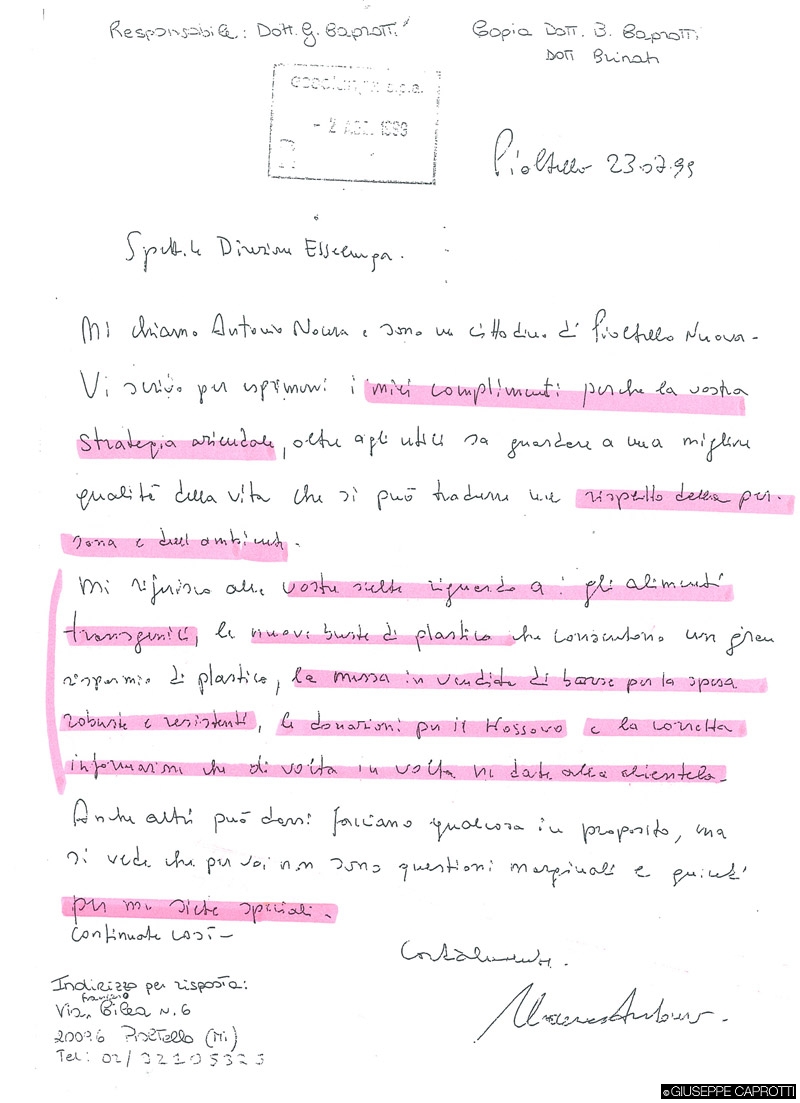 Responsabile: Dott. G. Caprotti
Copia Dott. B. Caprotti
Dott Brinati
Esselunga s.p.a.
- 2 AGO. 1999
Pioltello 23.07.99
Spett.le Direzione Esselunga.
Mi chiamo Antonio e sono un cittadino di Pioltello Nuova-
Vi scrivo per esprimervi i miei complimenti perche la vostra
strategia aziendale, oltre agli utili sa guardare a una migliore
qualità della vita che si può tradurre nel rispetto della per-
sona e dell'ambiente.
Mi riferisco alle vostre scelte riguardo a i gli alimenti
transgenici, le nuove buste di plastica che consentono un gran
risparmio di plastica, la messa in vendita di borse per la spesa
robuste e resistenti, le donazioni per il Kossovo e la corretta
informazione che di volta in volta ne date alla clientela.
Anche altri può darsi facciano qualcosa in proposito, ma
si vede che per voi non sono questioni marginali e quindi
per me siete speciali.
Continuate così-
Cordialmente.
Indirizzo per risposta:
Via, Cilea N. 6
20096 Pioltello (Mi)
Tel: 02/32105323
©GIUSEPPE CAPROTTI